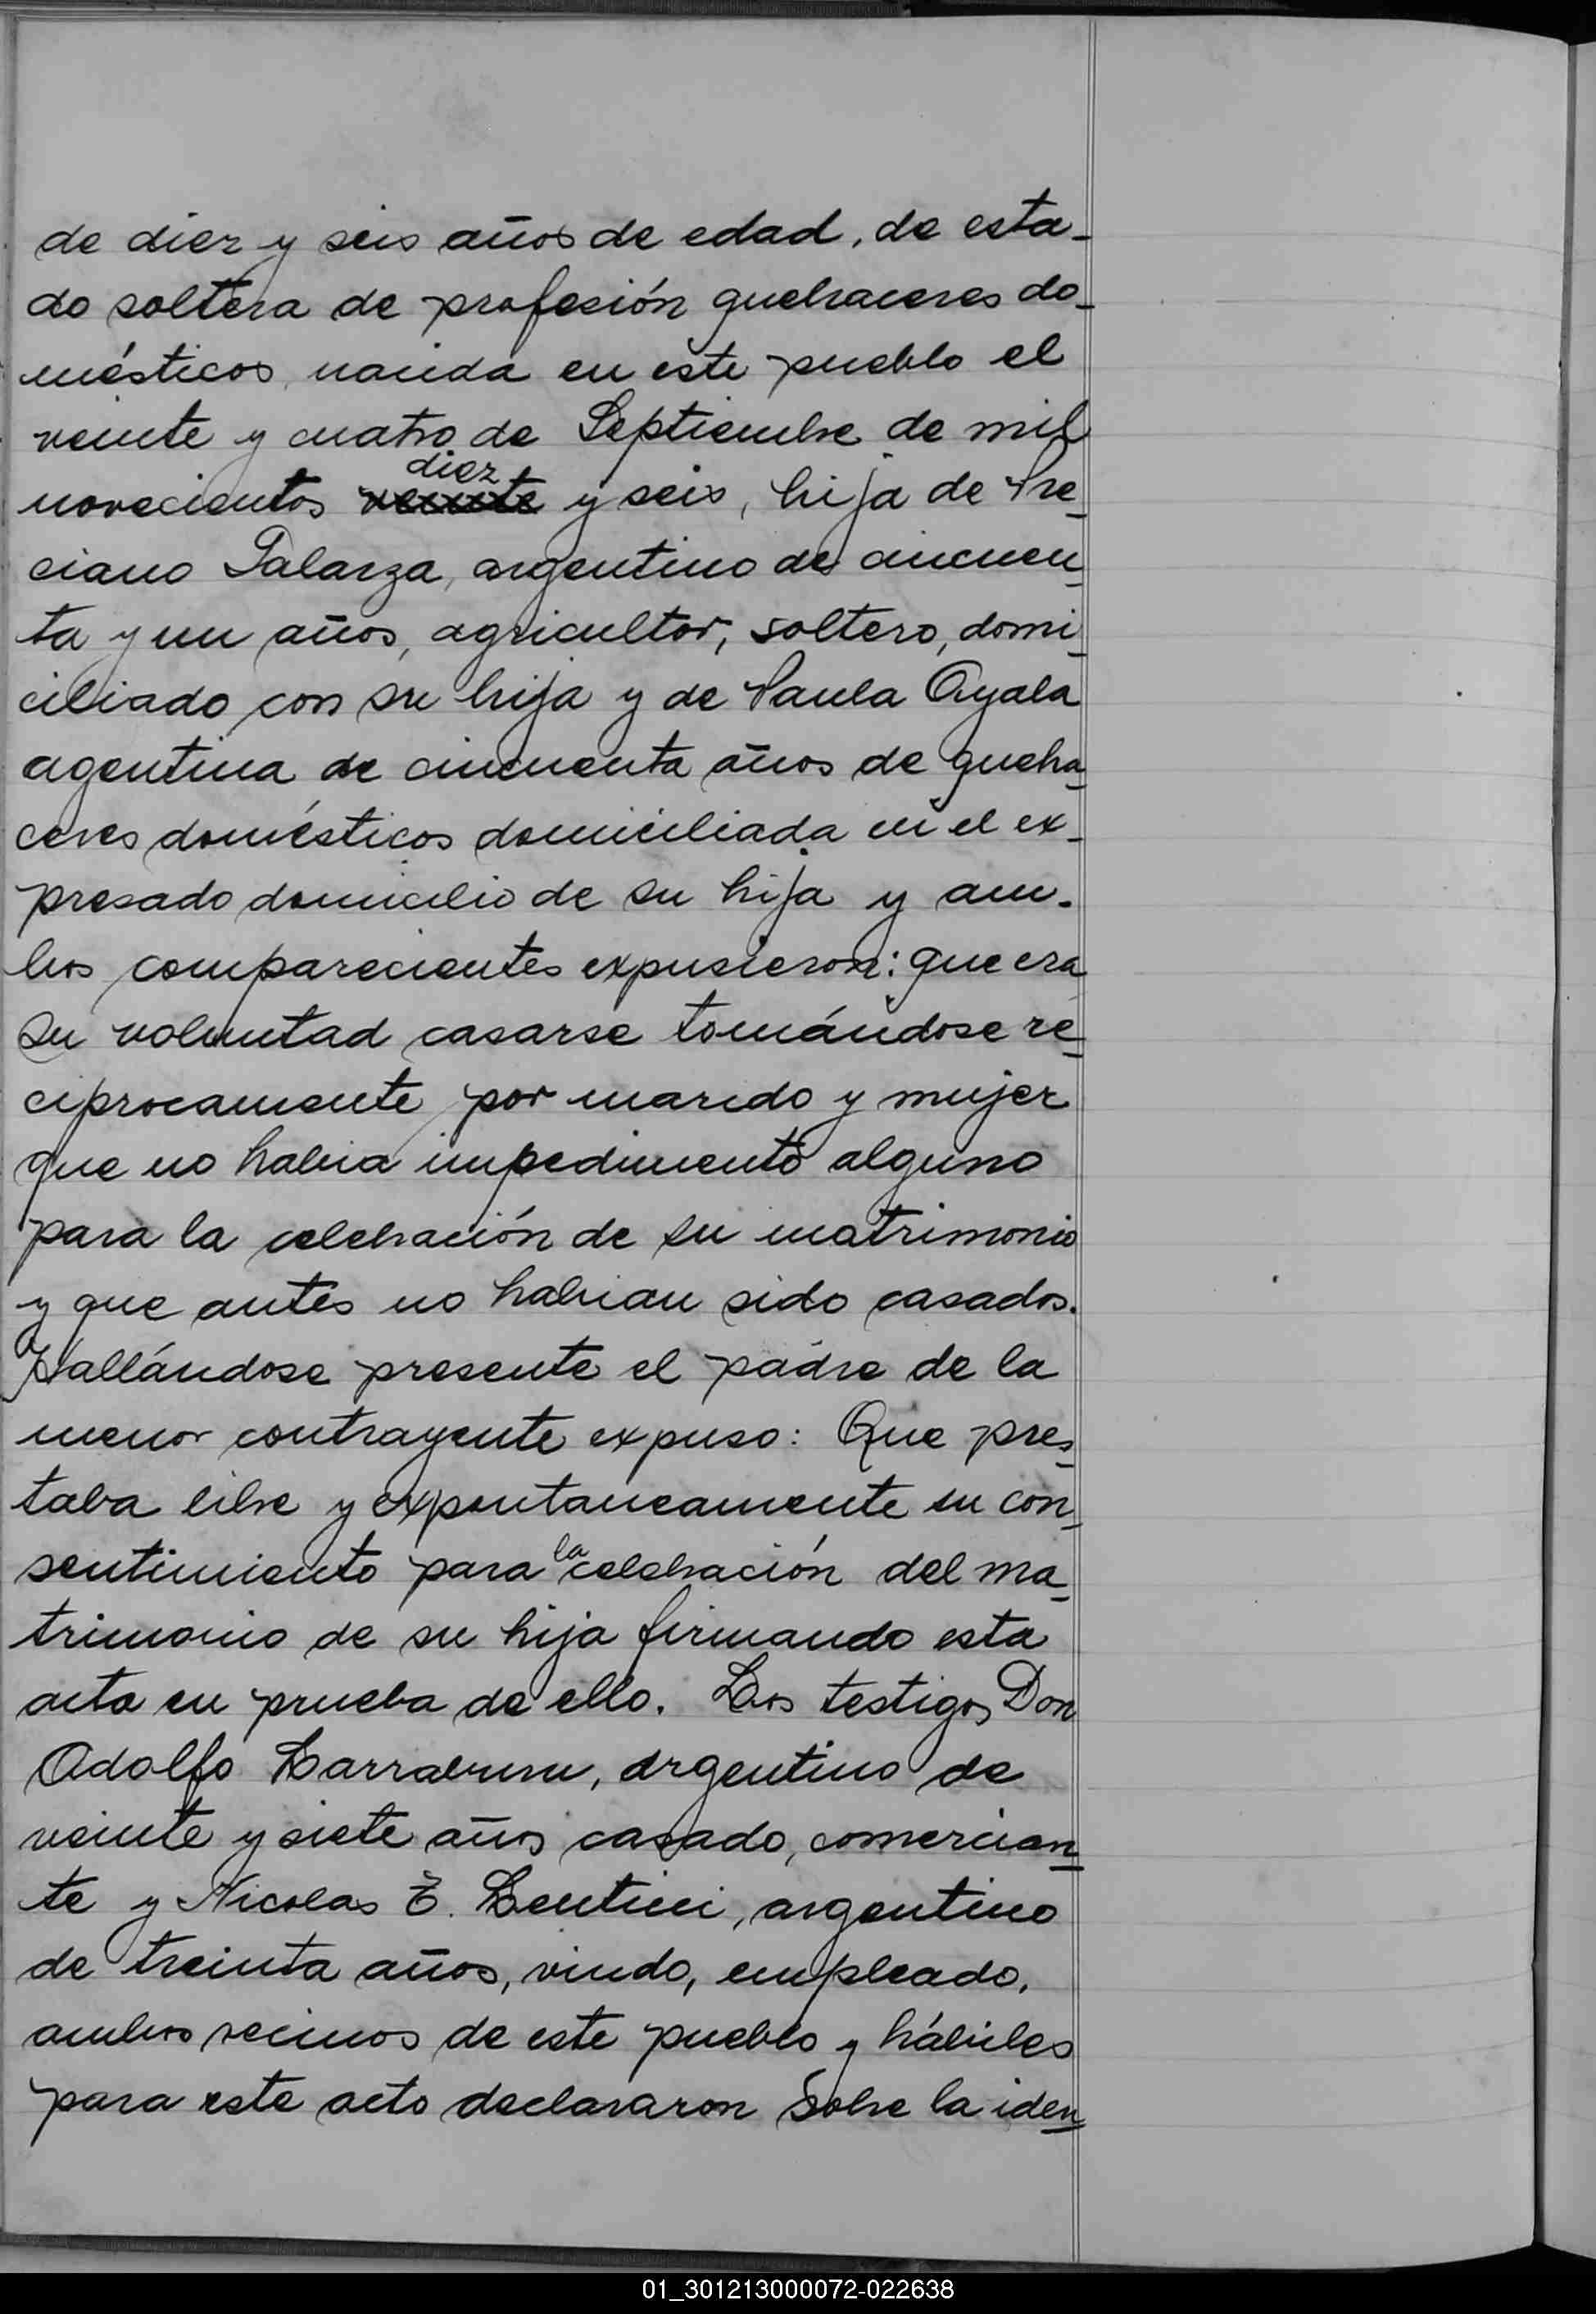 de diez y seis años de edad, de esta-
do soltera de profesión quehaceres do-
mésticos, nacida en este pueblo el
veinte y cuatro de Septiembre de mil
diez
novecientos veinte y seis, hija de Pre-
ciano Galarza, argentino de cincuen-
ta y un años, agricultor, soltero, domi-
ciliado con su hija y de Paula Ayala
agentina de cincuenta años de queha-
ceres domésticos domiciliada en el ex-
presado domicilio de su hija y am-
bos comparecientes expusieron: que era
su voluntad casarse tomándose re-
ciprocamente por marido y mujer
que no habia impedimento alguno
para la celebración de su matrimonio
y que antes no habian sido casados.
Hallándose presente el padre de la
menor contrayente expuso: Que pres-
taba libre y expontaneamente su con-
sentimiento para la celebración del ma-
trimonio de su hija firmando esta
acta en prueba de ello. Los testigos Don
Adolfo argentino de
veinte y siete años casado, comercian-
te y Nicolas E. Lentini, argentino
de treinta años, viudo, empleado,
ambos vecinos de este pueblo y hábiles
para este acto declararon sobre la iden-
01_301213000072-022638